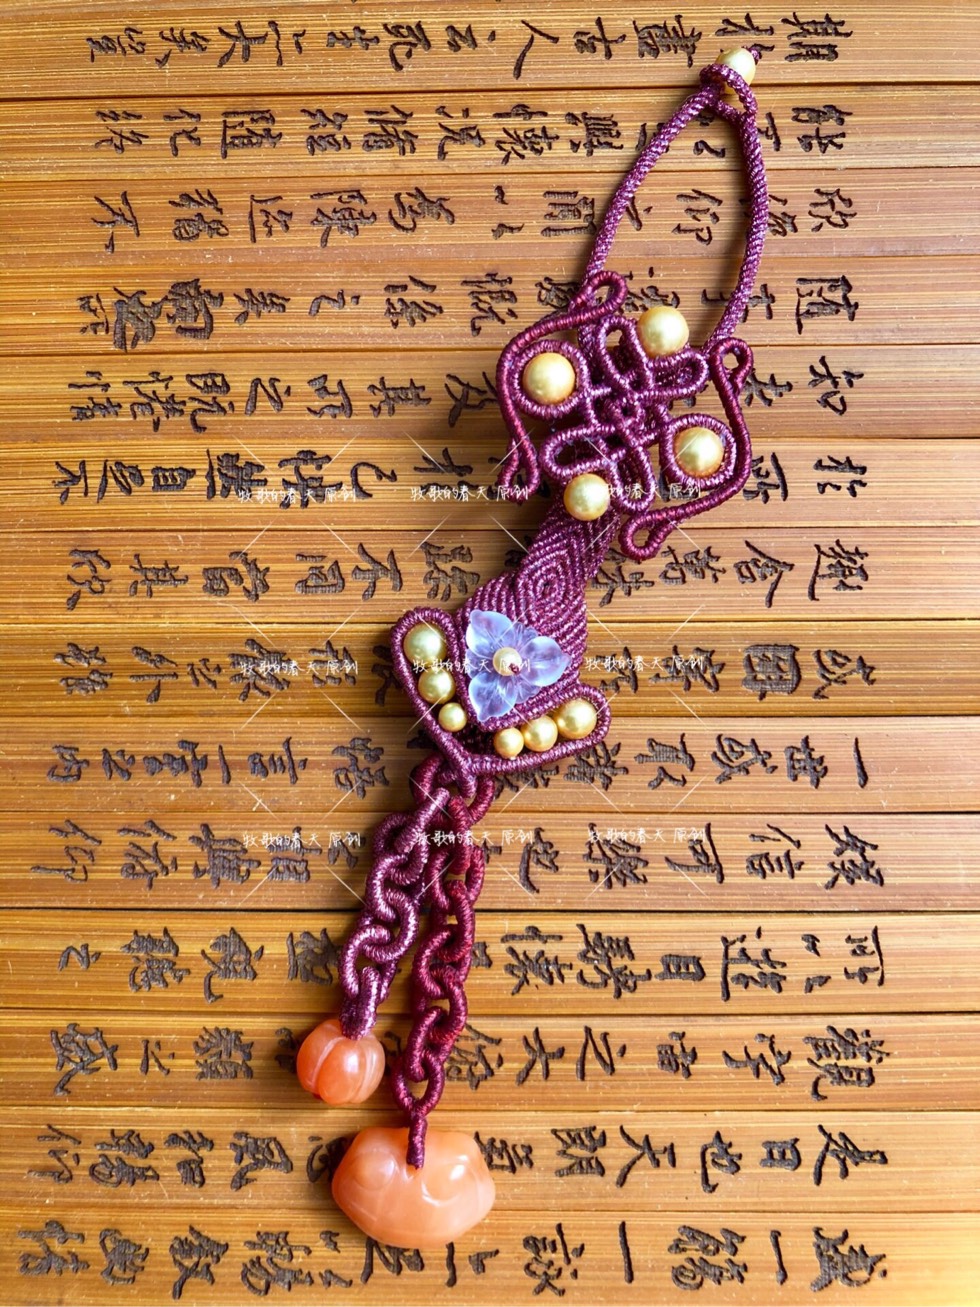 盛一觴一詠足以暢敘幽情
是日也天朗氣風和暢仰
觀宇宙之大俯類之盛
所以遊目騁懷極視聽之
娛信可樂也之相與俯仰
一世或取諸悟言一室之內
或因寄所浪形骸之外雖
趣舍萬殊躁不同當其欣
於所得於己快然自足不
知老及其所之既惓情
隨事遷感慨係之矣向之所
欣俛仰之間以為陳迹猶不
能不以興懷況脩短隨化終
期於盡古人云死生亦大矣豈
牧歌的春天 原创
牧歌的春天 原创
牧歌的春天 原创
牧歌的春天 原创
牧歌的春天 原创
牧歌的春天 原创
牧歌的春天 原创
牧歌的春天 原创
牧歌的春天 原创